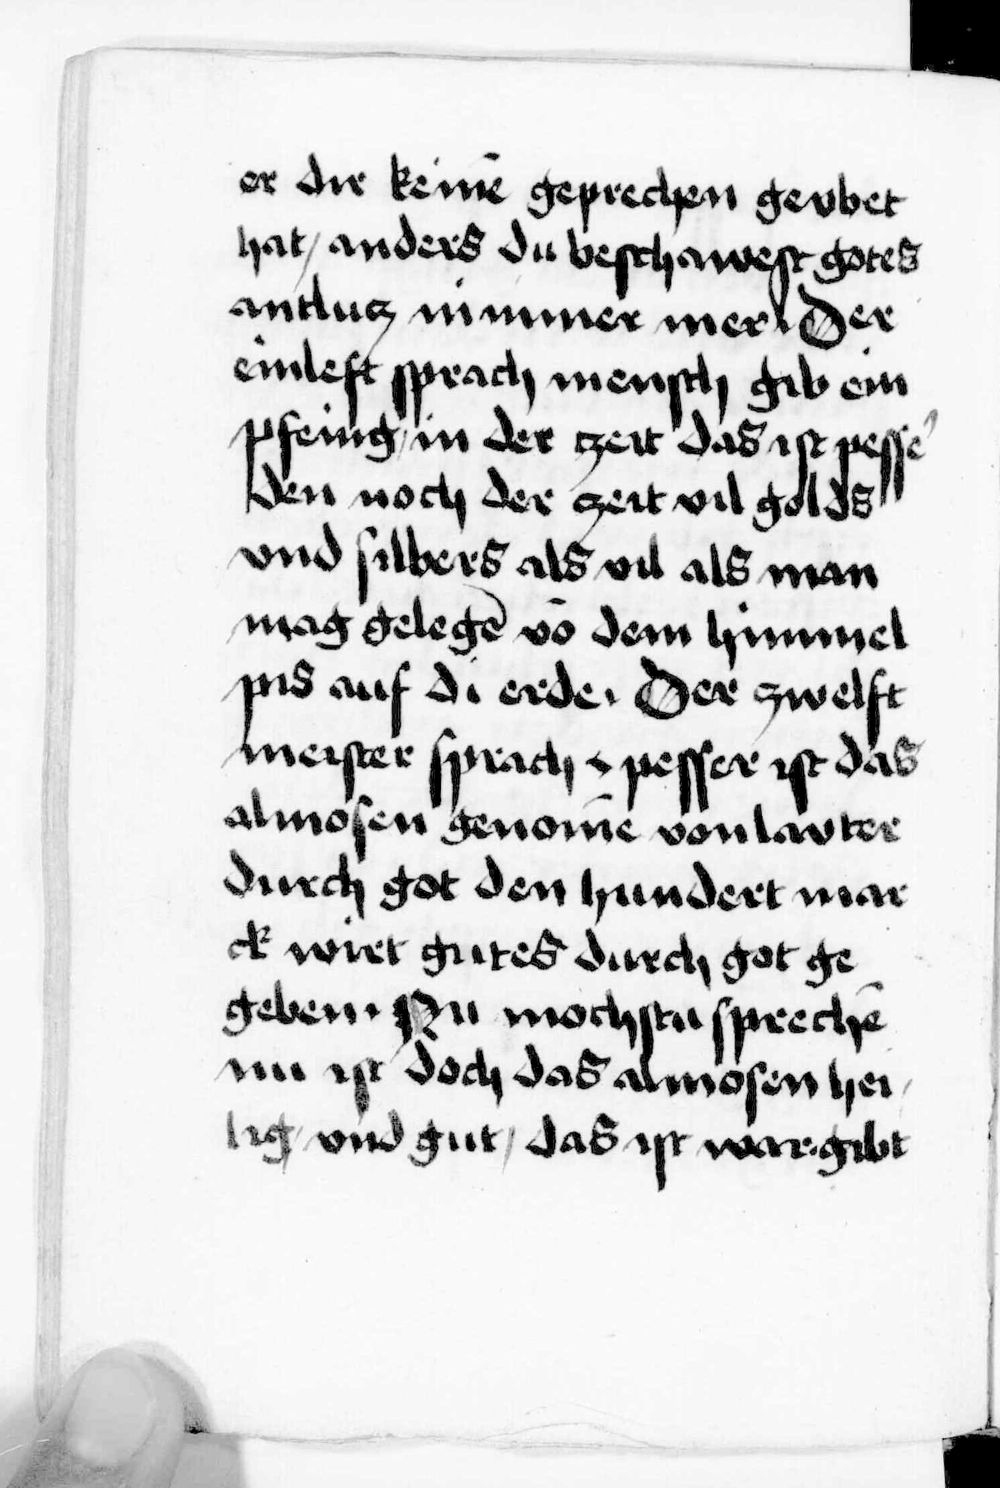 er dir keinē geprechen gevbet
hat/ anders du beschawest gotes
antlucz nimmer mer. Der
einleft sprach mensch gib ein
pfeinig/ in der czeit das ist pesse᾽
den noch der czeit vil golds
vnd silbers als vil als man
mag gelegē vō dem himmel
pis auf di erde. Der zwelft
meister sprach . pesser ist das
almosen genomē von lavter
durch got den hundert mar
ck wirt gutes durch got ge
geben. Nu mochstu sprechē
nu ist doch das almosen hei/
lig/ vnd gut/ das ist war.gibt